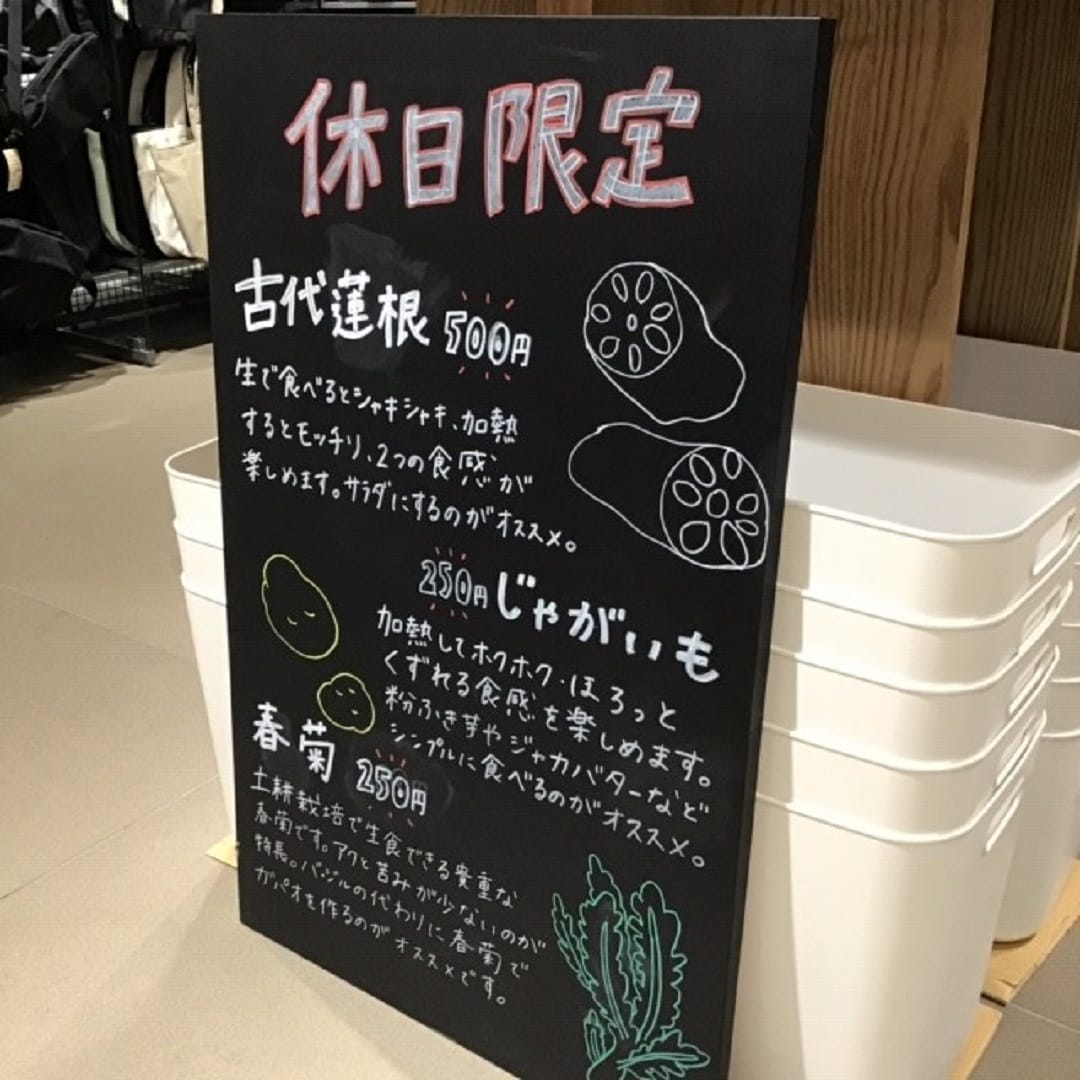 休日限定
古代蓮根 500円
生で食べるとシャキシャキ、加熱
するとモッチリ、2つの食感が
楽しめます。サラダにするのがオススメ。
250円 じゃがいも
加熱してホクホク・ほろっと
くずれる食感を楽しめます。
粉ふき芋やジャガバターなど
シンプルに食べるのがオススメ。
春菊 250円
土耕栽培で生食できる貴重な
春菊です。アクと苦みが少ないのが
特長。バジルの代わりに春菊で
ガパオを作るのがオススメです。